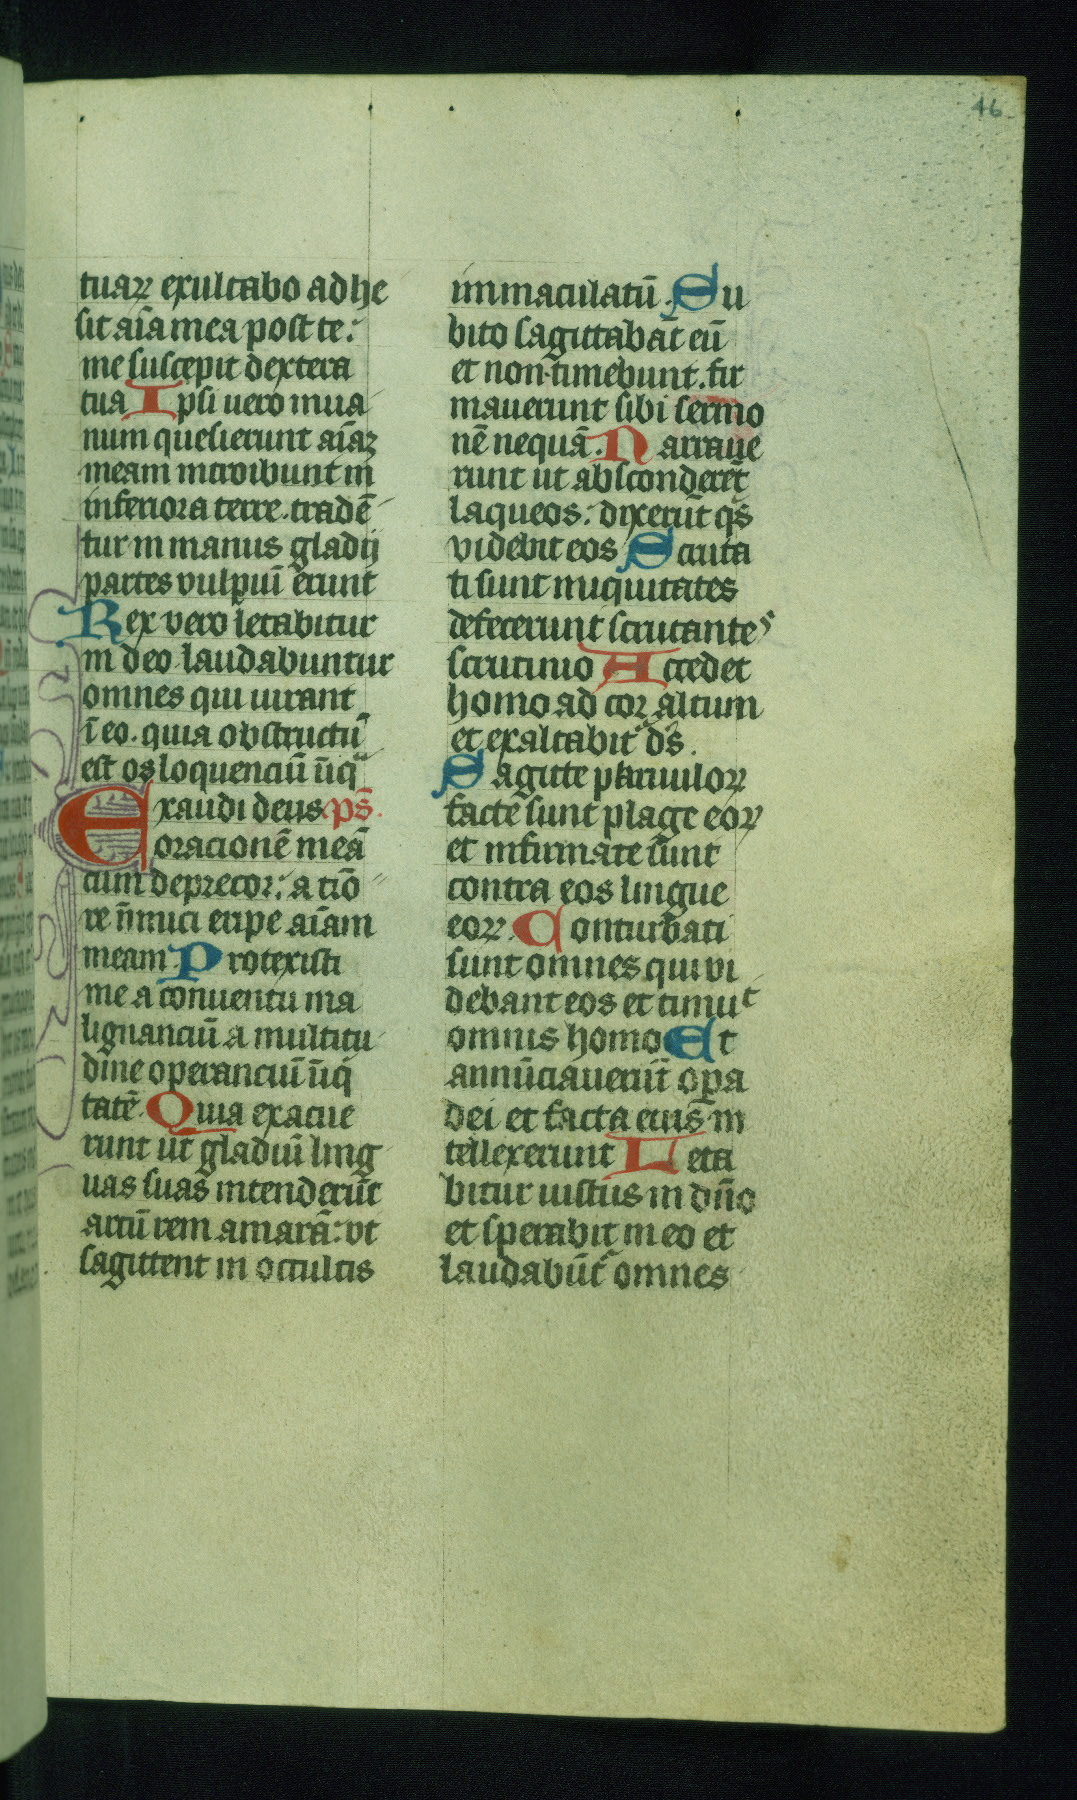 46
tuaꝝ exultabo adhe
sit aīa mea post te:
me suscepit dextera
tua Ipsi uero in ua
num quesierunt aīaꝫ
meam introibunt in
inferiora terre. tradē
tur in manus gladij
partes vulpiū erunt
Rex vero letabitur
in deo laudabuntur
omnes qui iurant
ī eo. quia obstructū
est os loquenciū ūiq
Exaudi deus ps̄.
oracionē meā
cum deprecor: a tiō
re īnimici eripe aīam
meam Protexisti
me a conuentu ma
lignanciū a multitu
dine operanciū īiq̄
tatē. Quia exacue
runt ut gladiū ling
uas suas intenderūt
arcū rem amarā: vt
sagittent in occultis
immaculatū. Su
bito sagittabāt eū
et non timebunt. fir
mauerunt sibi sermo
nē nequā. Narraue
runt ut absconderēt
laqueos: dixerūt q̄s
videbit eos Scruta
ti sunt iniquitates
defecerunt scrutantes
scrutinio Accedet
homo ad cor altum
et exaltabit᷑ ds̄.
Sagitte paruuloꝝ
facte sunt plage eoꝝ
et infirmate sunt
contra eos lingue
eoꝝ. Conturbati
sunt omnes qui vi
debant eos et timuᵗ
omnis homo Et
annūciauerūt oꝑa
dei et facta eius in
tellexerunt Leta
bitur iustus in dn̄o
et sperabit in eo et
laudabūt᷑ omnes